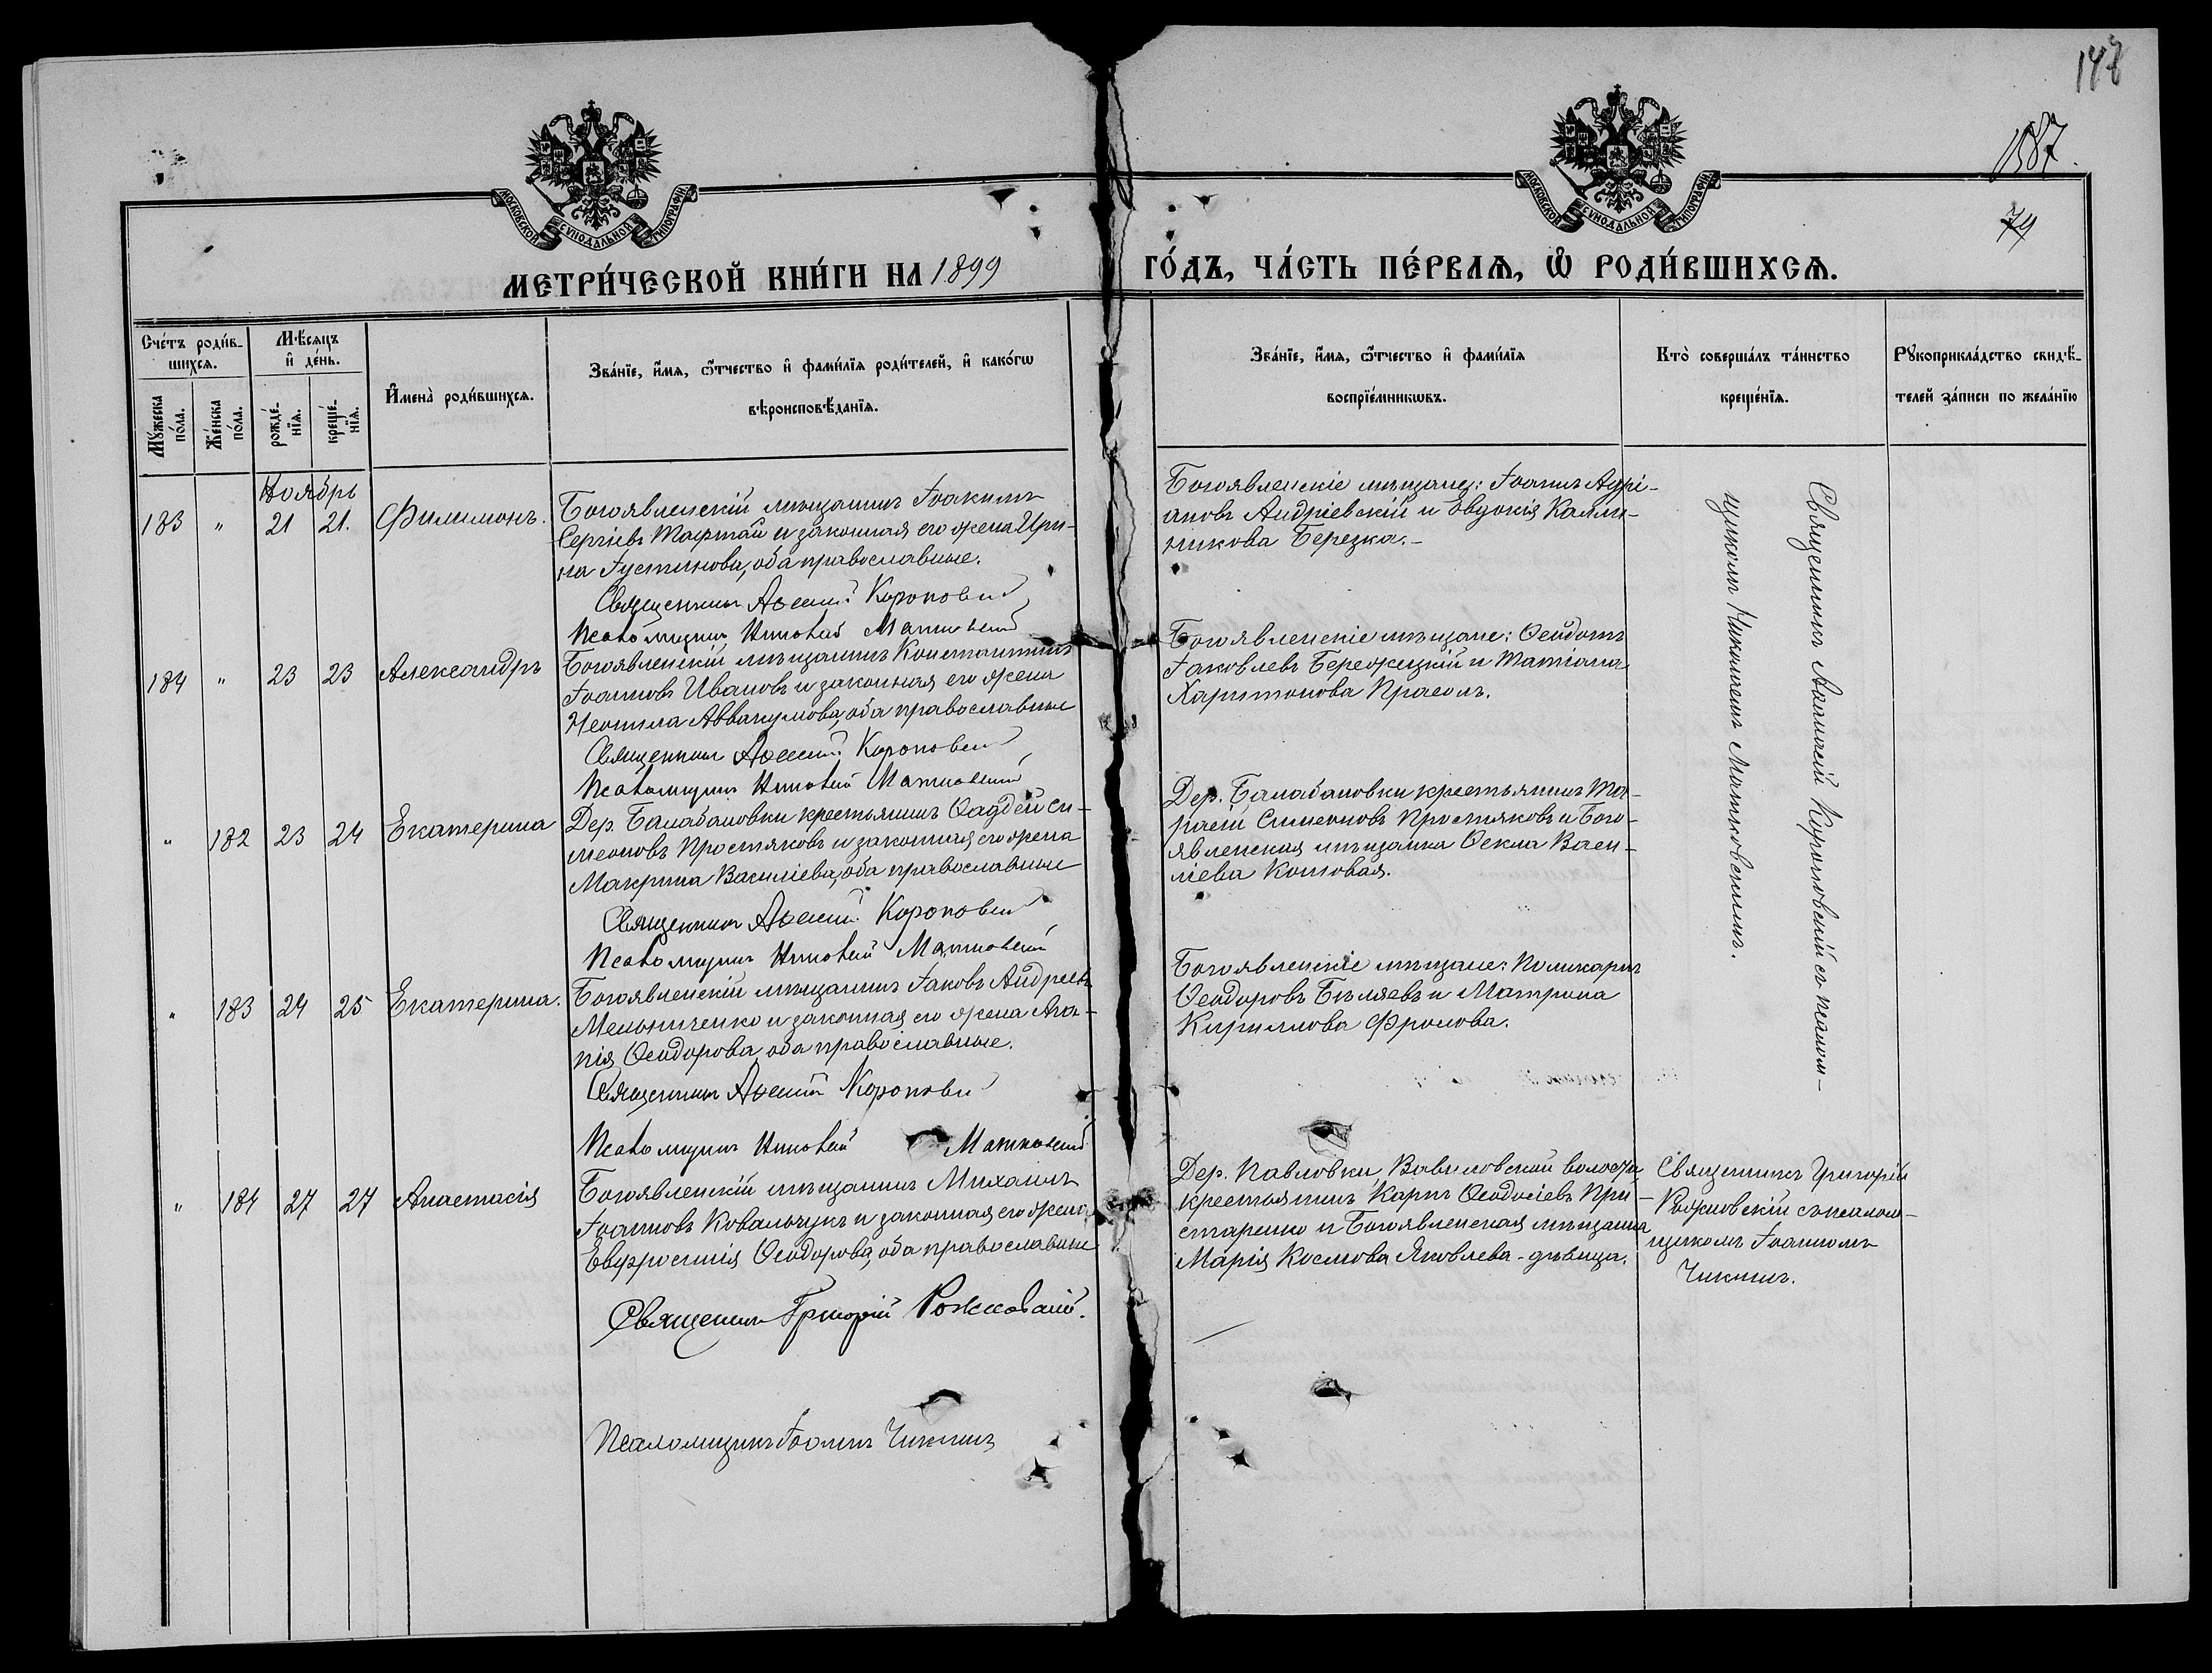 148
1587.
79
МОСКОВСКОЙ СѴНОДАЛЬНОЙ ТИПОГРАФІИ
МОСКОВСКОЙ СѴНОДАЛЬНОЙ ТИПОГРАФІИ
МЕТРИ́ЧЕСКОЙ КНИ́ГИ НА 1899
ГО́ДЪ, ЧА́СТЬ ПЕ́РВАѦ, Ѡ҆ РОДИ́ВШИХСѦ.
Сче́тъ роди́в-
шихсѧ.
Мꙋ́жеска по́ла.
Же́нска по́ла.
Мѣ́сѧцъ
и҆ де́нь.
рожде́-
нїѧ.
креще́-
нїѧ.
И҆мена̀ роди́вшихсѧ.
Зва́нїе, и҆́мѧ, ѻ҆́тчество и҆ фами́лїѧ роди́телей, и҆ како́гѡ
вѣроисповѣ́данїѧ.
Зва́нїе, и҆́мѧ, ѻ҆́тчество и҆ фами́лїѧ
воспрїе́мникѡвъ.
Кто̀ соверша́лъ та́инство
креще́нїѧ.
Рꙋкоприкла́дство свидѣ́-
телей за́писи по жела́нїю
Ноябрь
183 " 21 21. Филимонъ.
Богоявленскій мѣщанинъ Іоакимъ
Сергіевъ Тафтай и законная его жена Ири-
на Іустинова, оба православные.
Священникъ Короповскій
Псаломщикъ Николай Матковскій
Богоявленскіе мѣщане: Іоаннъ Адрі-
ановъ Андріевскій и Евдокія Каллі-
никова Березка.-
184 " 23 23 Александръ
Богоявленскій мѣщанинъ Константинъ
Іоанновъ Ивановъ и законная его жена
Неонила Аввакумова, оба православные
Священникъ Короповскій
Псаломщикъ Николай Матковскій
Богоявленскіе мѣщане: Ѳеодотъ
Іаковлевъ Бережецкій и Татіана
Харитонова Прасолъ.
" 182 23 24 Екатерина
Дер. Балабановки крестьянинъ Ѳаддей Си-
меоновъ Простяковъ и законная его жена
Макрина Василіева, оба православные
Священникъ Короповскій
Псаломщикъ Николай Матковскій
Дер. Балабановки крестьянинъ Та-
расій Симеоновъ Простяковъ и Бого-
явленская мѣщанка Ѳекла Васи-
ліева Котовая.
" 183 24 25 Екатерина.
Богоявленскій мѣщанинъ Іаковъ Андреевъ
Мельниченко и законная его жена Ага-
пія Ѳеодорова, оба православные.
Священникъ Короповскій
Псаломщикъ Николай Матковскій
Богоявленскіе мѣщане: Поликарпъ
Ѳеодоровъ Бѣляевъ и Матрона
Кириллова Фролова.
Священникъ Короповскій съ псалом-
щикомъ Николаемъ Матковскимъ.
" 184 27 27 Анастасія
Богоявленскій мѣщанинъ Михаилъ
Іоанновъ Ковальчукъ и законная его жена
Евфросинія Ѳеодорова, оба православные
Священникъ Григорій Рожновскій.
Псаломщикъ Іоаннъ Чикнинъ
Дер. Павловки, Вавиловской волости,
крестьянинъ Карпъ Ѳеодосіевъ При-
старенко и Богоявленская мѣщанка
Марія Космова Яковлева - дѣвица.
Священникъ Григорій
Рожновскій съ псалом-
щикомъ Іоанномъ